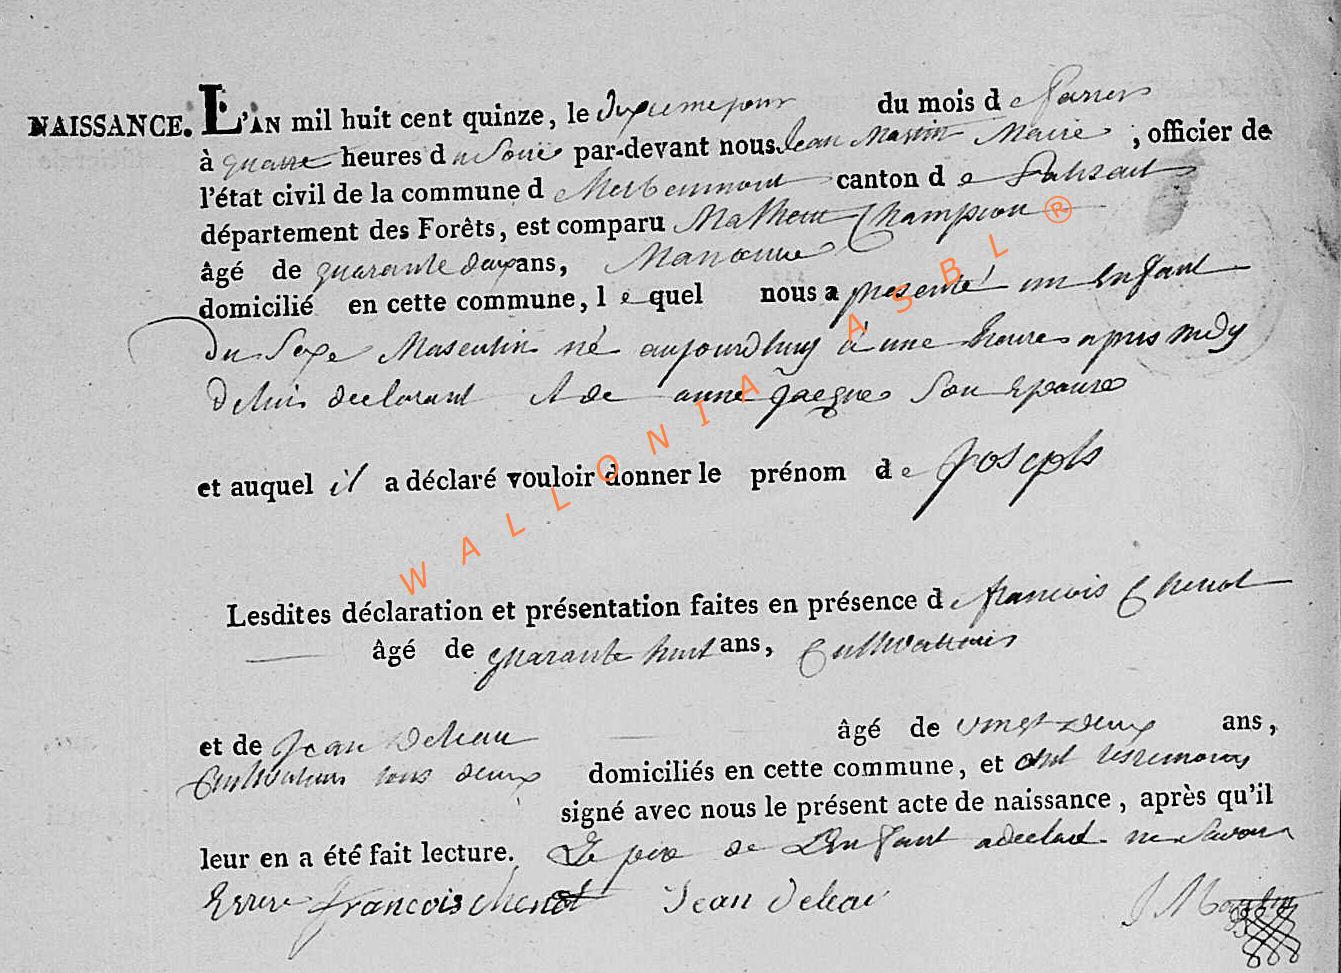 NAISSANCE. L'AN mil huit cent quinze, le du mois d e
à quatre heures du Soire par-devant nous Jean Martin Maire, officier de
l'état civil de la commune d e Herbeumont canton d e
département des Forêts, est comparu Matheux Champion
âgé de quarante deux ans, Manoeuvre
domicilié en cette commune, l e quel nous a presenté un Enfant
du Sexe Masculin né aujourdhuy à une heure apres midy
de luis declarant et de anne Jacques Son Epouse
et auquel il a déclaré vouloir donner le prénom d e Joseph
Lesdites déclaration et présentation faites en présence d e francois Chenot
âgé de quarante huit ans, Cultivateur
et de Jean Deleau âgé de vingt deux ans,
Cultivateur tous deux domiciliés en cette commune, et ont les temoins
signé avec nous le présent acte de naissance, après qu'il
leur en a été fait lecture. Le pere de L'Enfant a declaré ne Savoir
Ecrire francois chenot Jean Deleau J Martin
WALLONIA ASBL ®